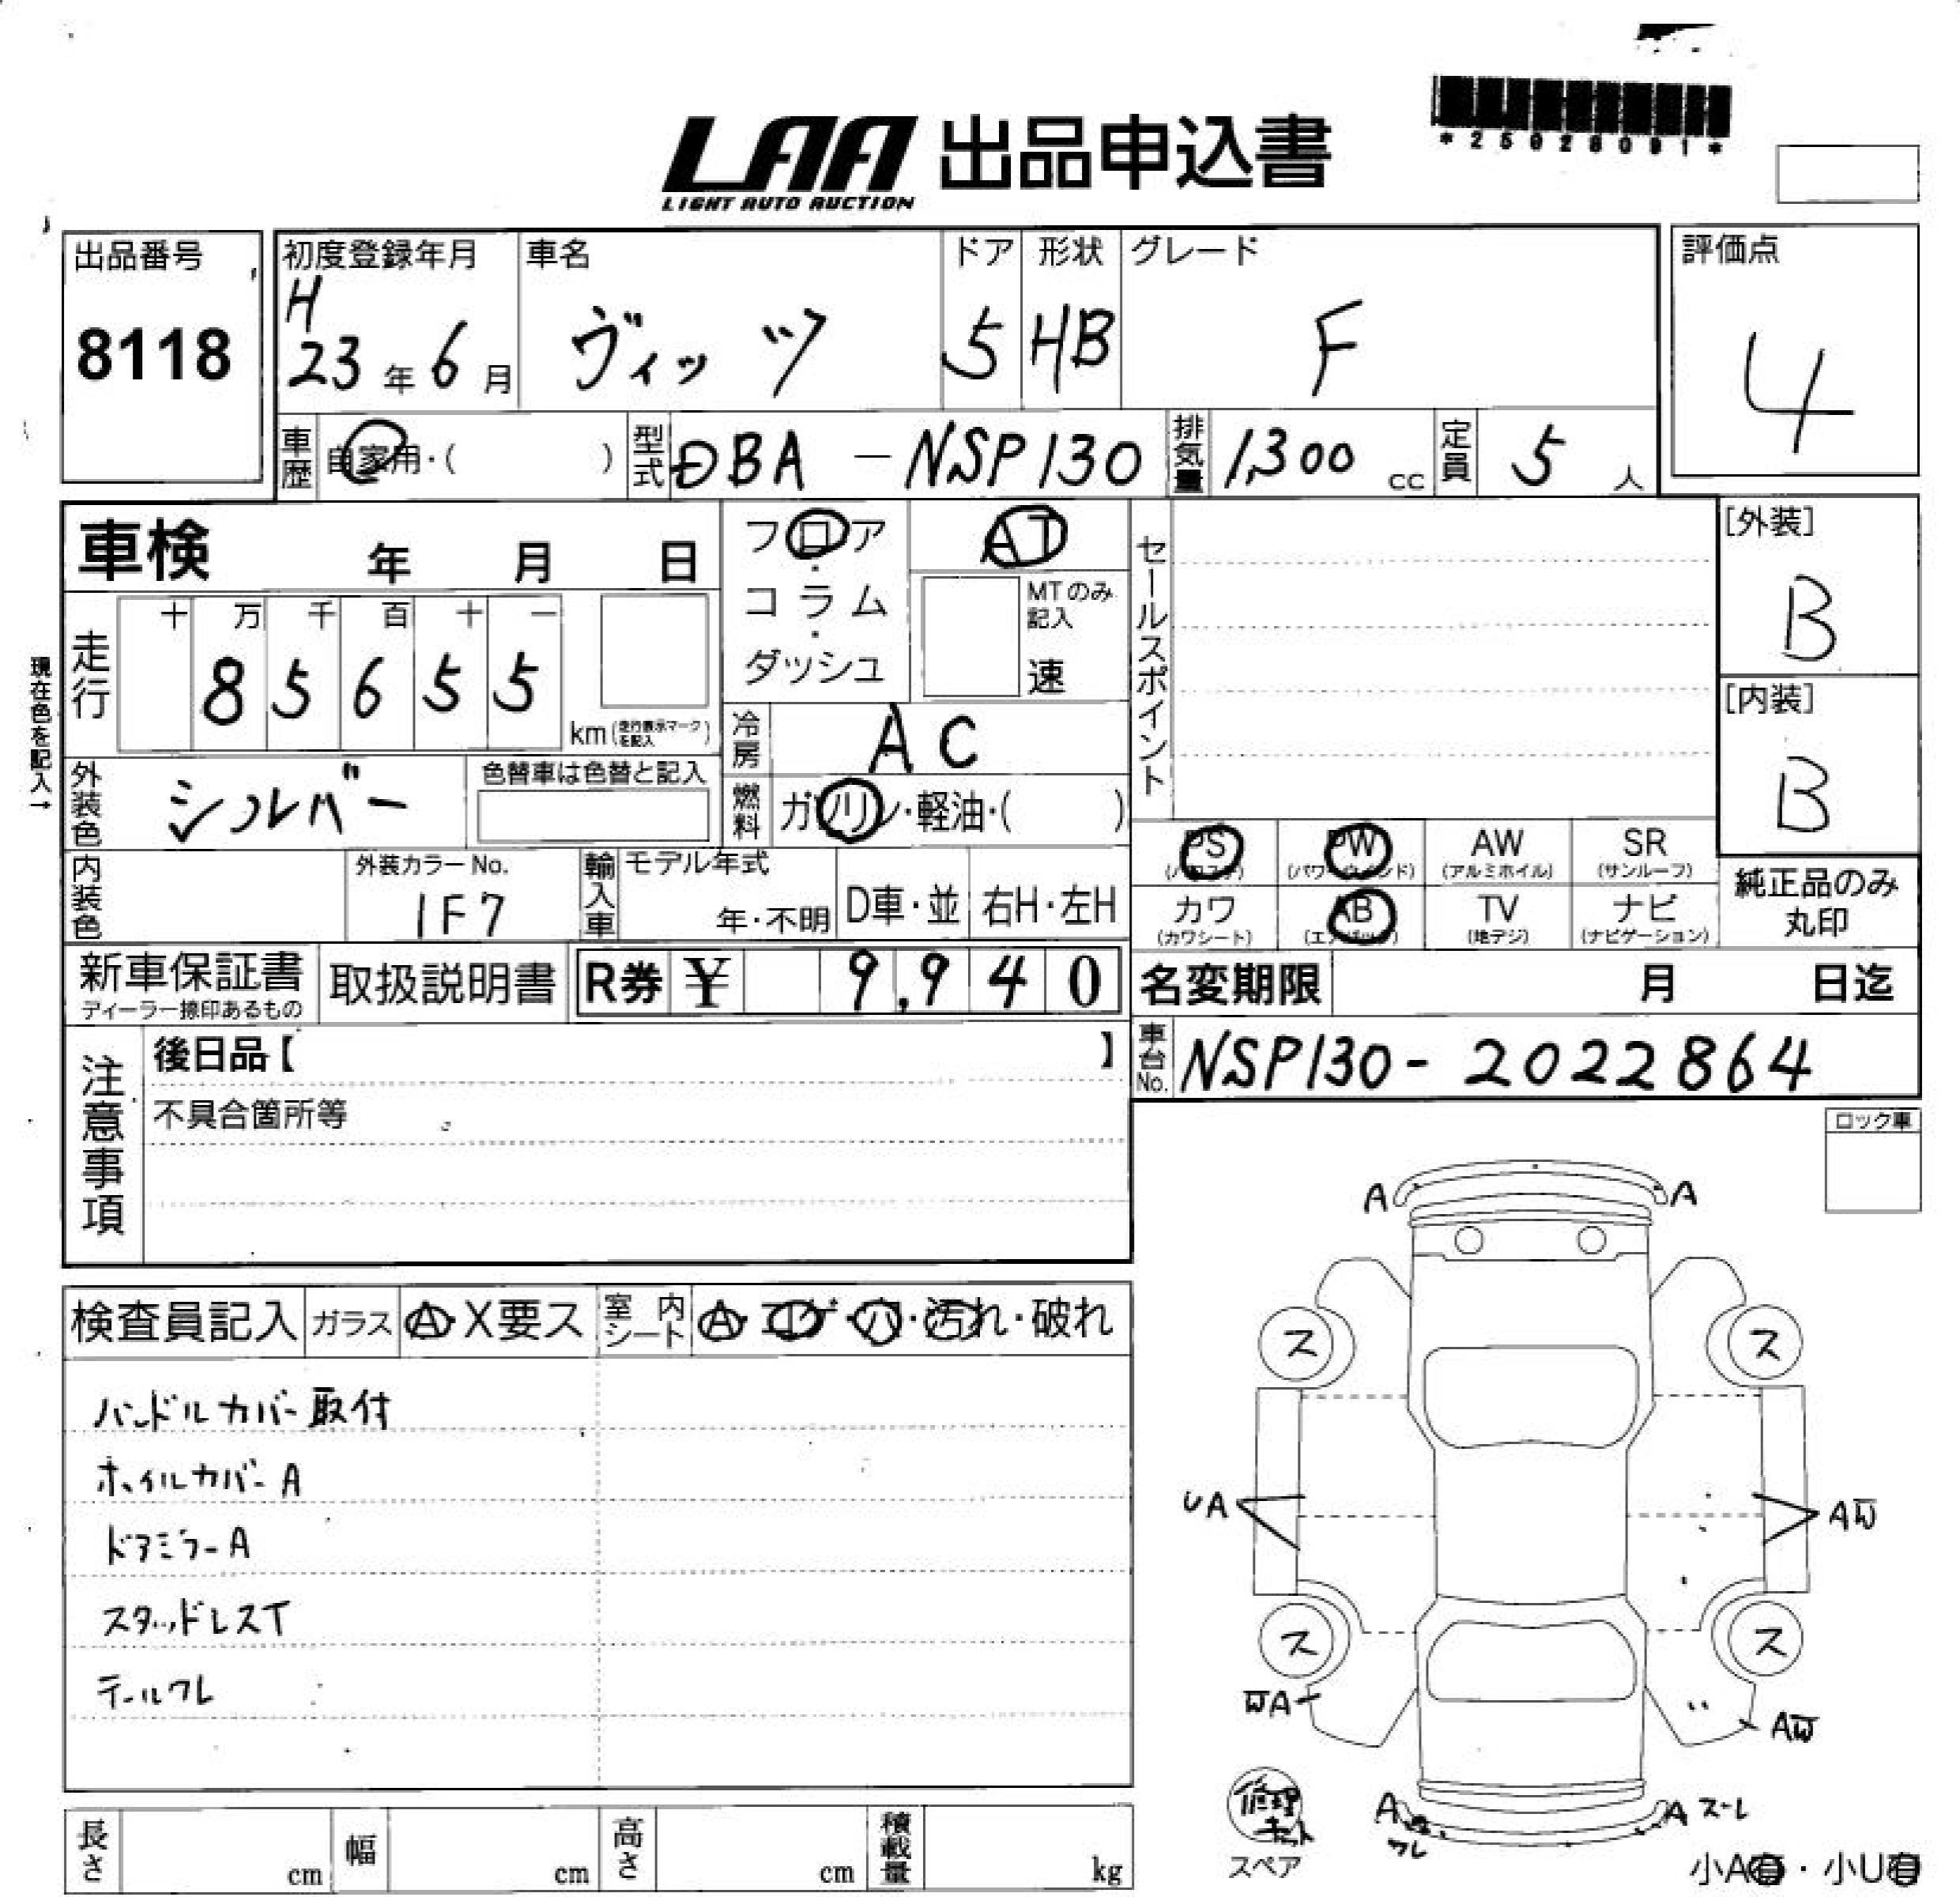 *25028091*
LAA 出品申込書
LIGHT AUTO AUCTION
出品番号
8118
初度登録年月
H
23年6月
車名
ヴィッツ
ドア
5
形状
HB
グレード
F
評価点
4
車歴 自家用・( )
型式 DBA-NSP130
排気量 1,300 cc
定員 5人
車検 年 月 日
フロア・コラム・ダッシュ
AT
MTのみ記入
速
セールスポイント
[外装]
B
[内装]
B
現在色を記入→
走行
十 万 千 百 十 一
8 5 6 5 5
km(走行表示マークを記入)
冷房 AC
燃料 ガソリン・軽油・( )
外装色 シルバー
色替車は色替と記入
内装色
外装カラーNo.
1F7
輸入車
モデル年式
年・不明
D車・並
右H・左H
PS PW AW SR
(パワステ) (パワーウインド) (アルミホイル) (サンルーフ)
カワ AB TV ナビ
(カワシート) (エアバッグ) (地デジ) (ナビゲーション)
純正品のみ
丸印
新車保証書
ディーラー捺印あるもの
取扱説明書
R券 ¥ 9,940
名変期限 月 日迄
車台No. NSP130-2022864
注意事項
後日品【 】
不具合箇所等
ロック車
検査員記入
ガラス A・X要ス
室内シート A・コゲ・穴・汚れ・破れ
ハンドルカバー取付
ホイルカバーA
ドアミラーA
スタッドレスT
テールワレ
A A
ス ス
UA AW
ス ス
WA AW
A ワレ
A ズレ
修理キット
スペア
小A有・小U有
長さ cm
幅 cm
高さ cm
積載量 kg